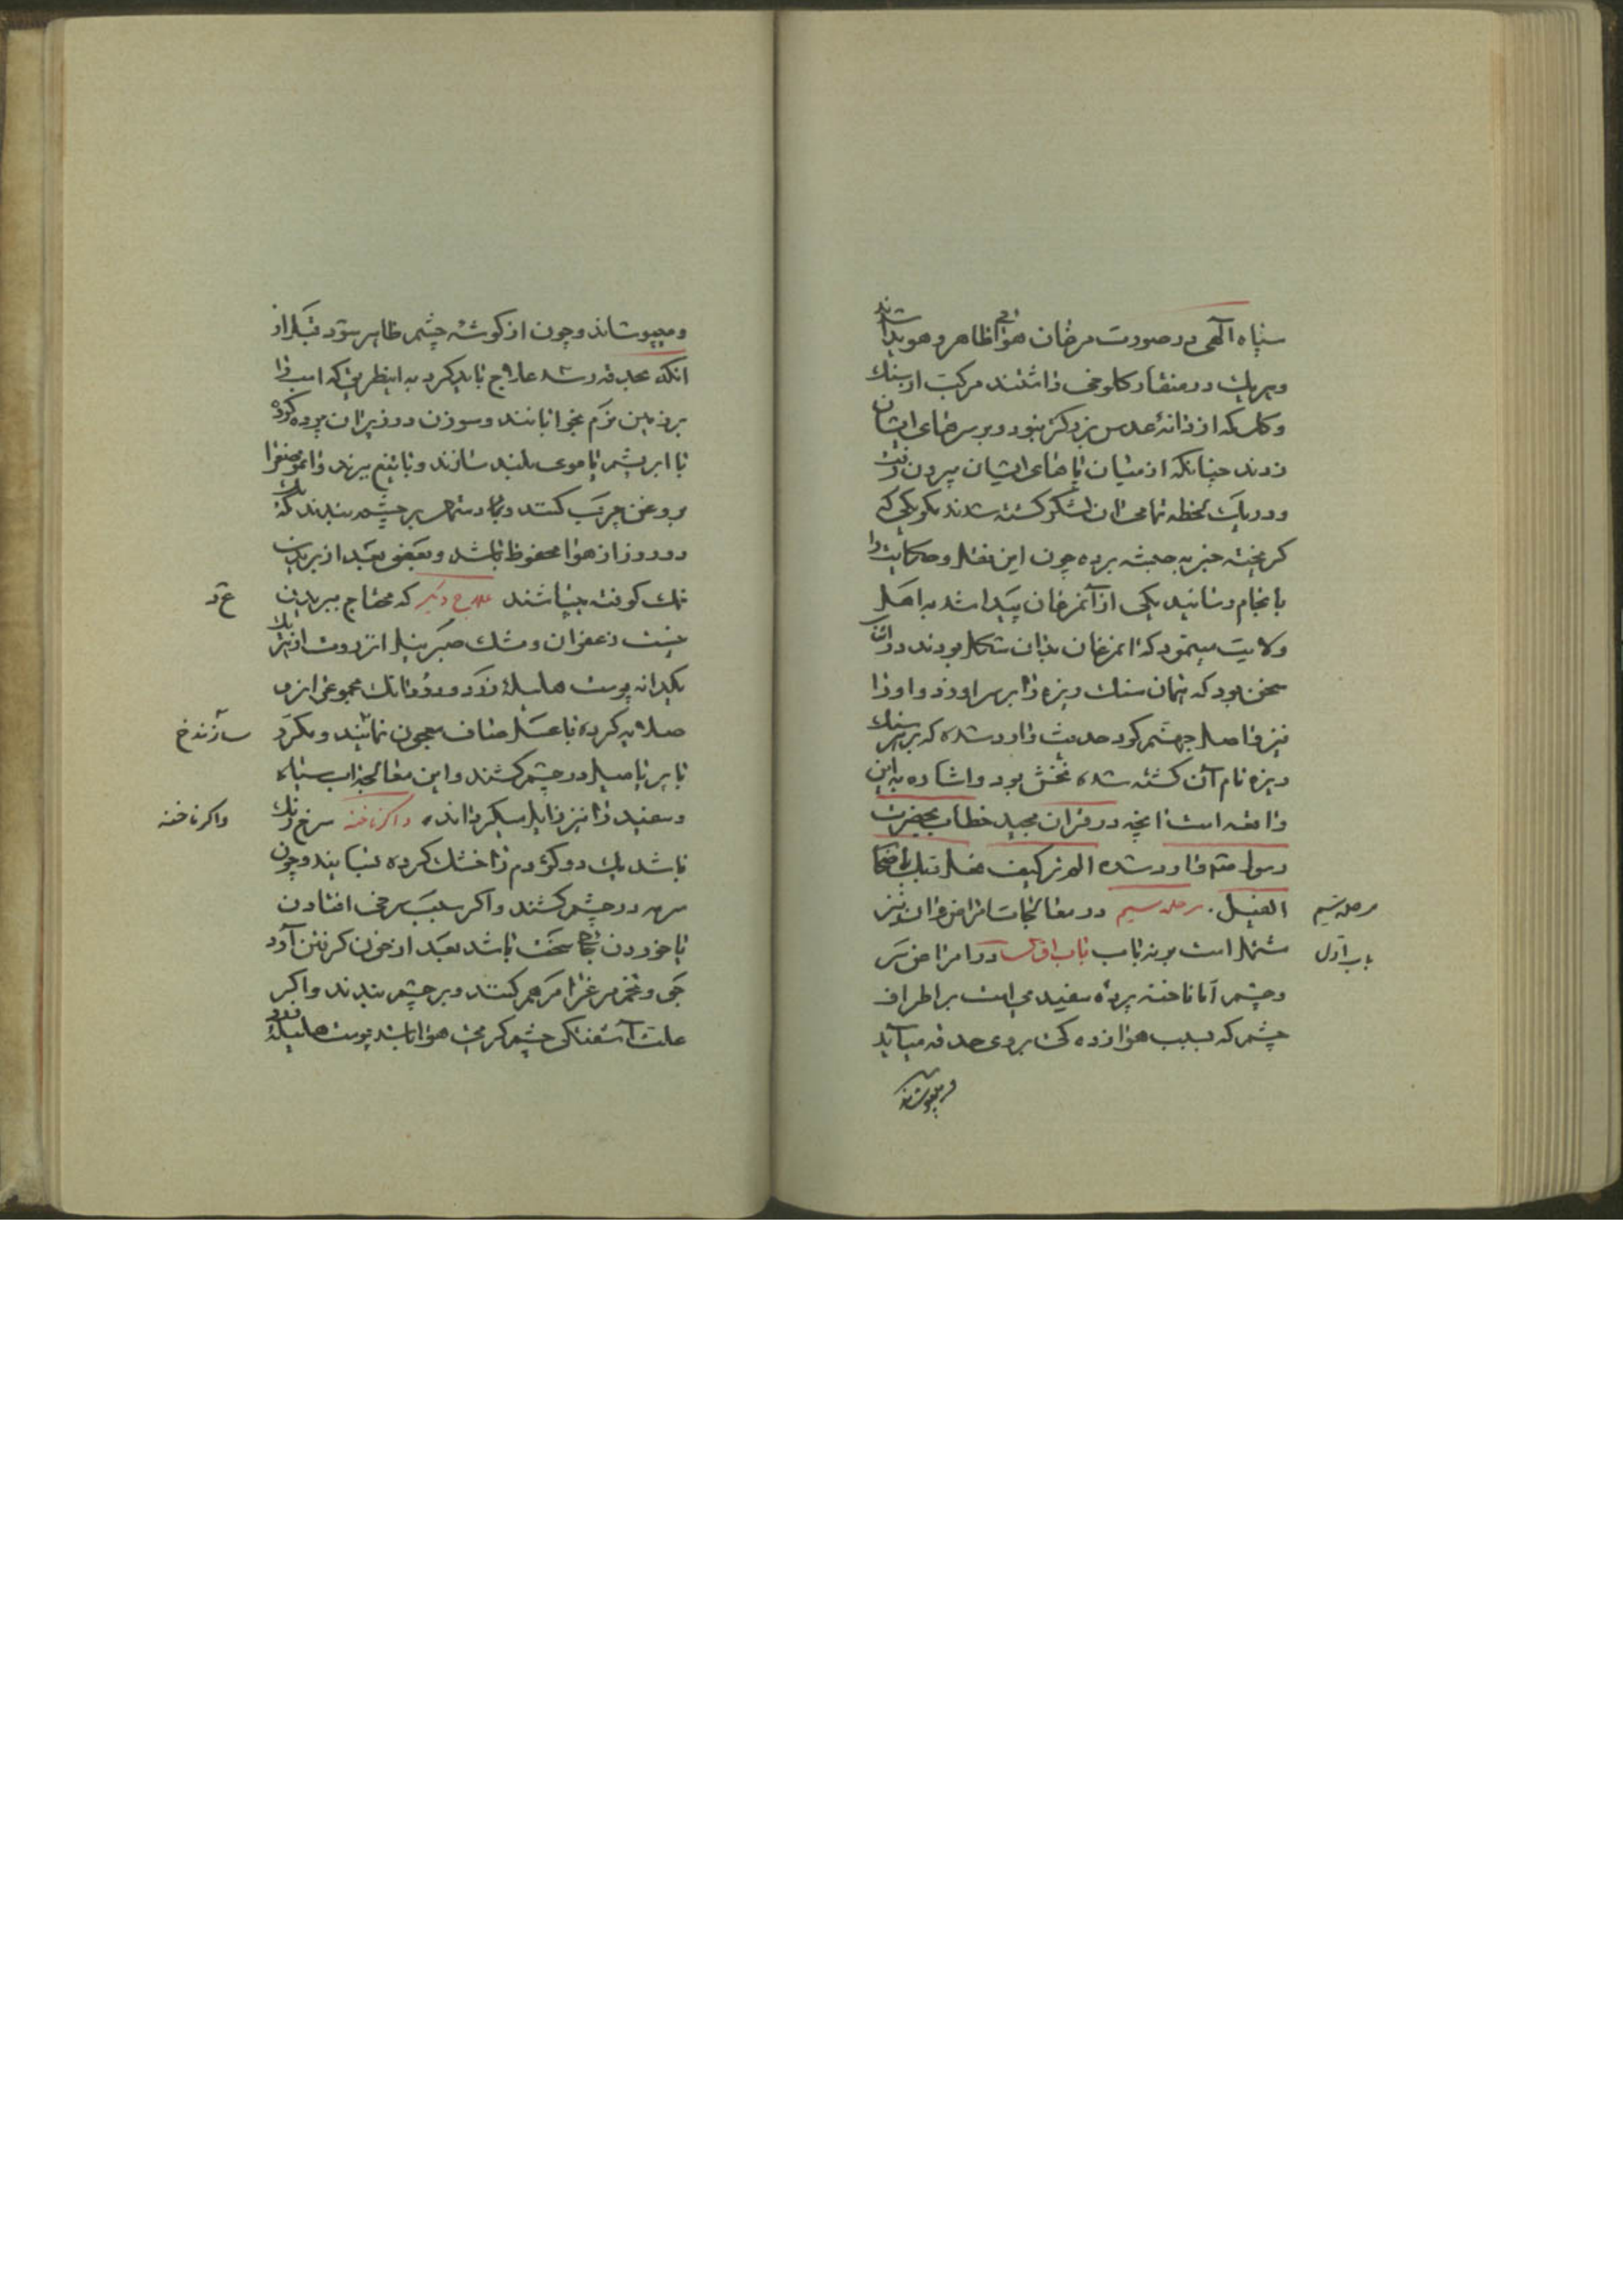 سپاه الهی در صورت مرغان هوائی ظاهر و هویدا شدند
و هر یک در منقار کلوخی داشتند مرکب از سنک
و کل که از دانهٔ عدس بزرکتر نبود و بر سرهای ایشان
زدند چنانکه از میان پاهای ایشان بیرون رفت
و در یک لحظه تمامی آن لشکر کشته شدند مکر یکی که
کریخته خبر به حبشه برده چون این نقل و حکایت را
بانجام رسانید یکی از آنمرغان پیدا شد به اهل
ولایت مینمود که آنمرغان بدان شکل بودند در این
سخن بود که همان سنک ریزه را بر سر او زد و او را
نیز واصل جهنم کرد حدیث وارد شده که بر هر سنک
ریزه نام آن کشته شده نقش بود و اشاره به این
واقعه است آنچه در قران مجید خطاب بحضرت
رسول وارد شده الم تر کیف فعل ربک باصحاب
الفیل. مرحله سیم در معالجات امراض
مرحله سیم
مشتمل است بر نه باب باب اول در امراض سر
باب اول
و چشم اما ناخنه پردهٔ سفیدی است بر اطراف
چشم که بسبب هوا زده کی بروی حدقه می آید
و میپوشاند
و میپوشاند و چون از کوشهٔ چشم ظاهر شود قبل از
آنکه بحدقه رسد علاج باید کرد به اینطریق که اسب را
بر زمین نرم بخوابانند و سوزن در زیر آن پرده کرده
با ابریشم یا موی بلند سازند و با تیغ ببرند و
بروغن چرب کنند و بر چشم ببندند که
دو روز از هوا محفوظ باشد و بعضی بعد از بریدن
نمک کوفته میپاشند علاج دیکر که محتاج ببریدن
ع د
نیست زعفران و مشک صبر نیل انزروت از هر یک
یکدانه پوست هلیلهٔ زرد دو دانک مجموع را نرم
صلایه کرده با عسل صاف معجون نمایند و مکرر
سازند خ
با پر یا میل در چشم کشند و این معالجه آب سیاه
و سفید را نیز زایل میکرداند، و اکر ناخنه سرخ رنک
واکر ناخنه
باشد یک دو کژدم را خشک کرده بسایند و چون
سرمه در چشم کشند و اکر بسبب سرخی افتادن
یا خوردن بجای سخت باشد بعد از خون کرفتن آرد
جو و تخم مرغ را مرهم کنند و بر چشم ببندند و اکر
علت آشفتکی چشم کرمی هوا باشد پوست هلیلهٔ زرد